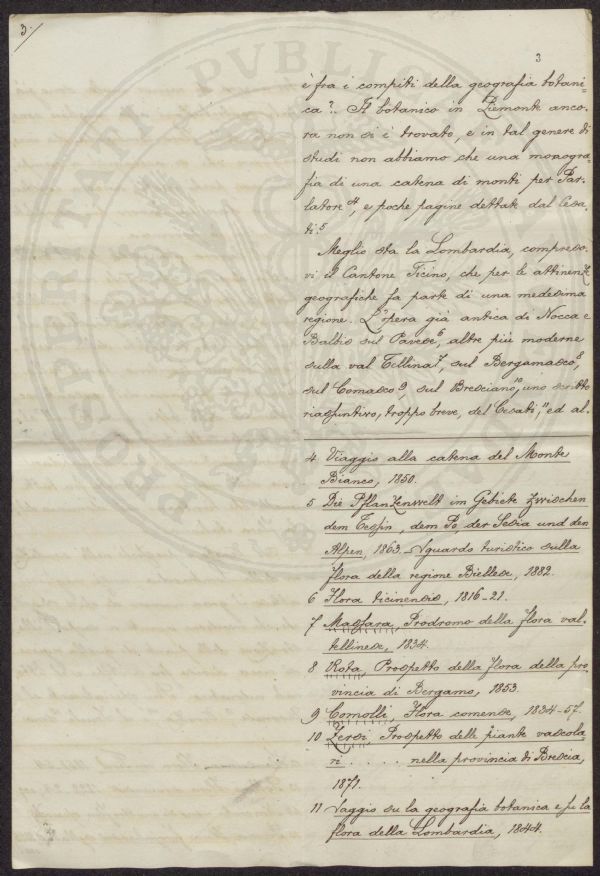 3.
3
è fra i compiti della geografia botani=
ca? Il botanico in Piemonte anco=
ra non si è trovato, e in tal genere di
studi non abbiamo che una monogra=
fia di una catena di monti per Par=
latore 4, e poche pagine dettate dal Cesa=
ti. 5
Meglio sta la Lombardia, compreso=
vi il Cantone Ticino, che per le attinenze
geografiche fa parte di una medesima
regione. L'opera già antica di Nocca e
Balbis sul Pavese 6, altre più moderne
sulla val Tellina 7, sul Bergamasco 8,
sul Comasco 9, sul Bresciano 10, uno scritto
riassuntivo, troppo breve, del Cesati, 11 ed al=
4 Viaggio alla catena del Monte
Bianco, 1850.
5 Die Pflanzenwelt im Gebiete zwischen
dem Tessin, dem Po, der Sesia und den
Alpen, 1863. - Sguardo turistico sulla
flora della regione Biellese, 1882.
6 Flora ticinensis, 1816-21.
7 Massara, Prodromo della flora val=
tellinese, 1834.
8 Rota, Prospetto della flora della pro=
vincia di Bergamo, 1853.
9 Comolli, Flora comense, 1834-57.
10 Zersi, Prospetto delle piante vascola=
ri . . . . . nella provincia di Brescia,
1871.
11 Saggio su la geografia botanica e su la
flora della Lombardia, 1844.
PUBLIC
PROSPERITATI